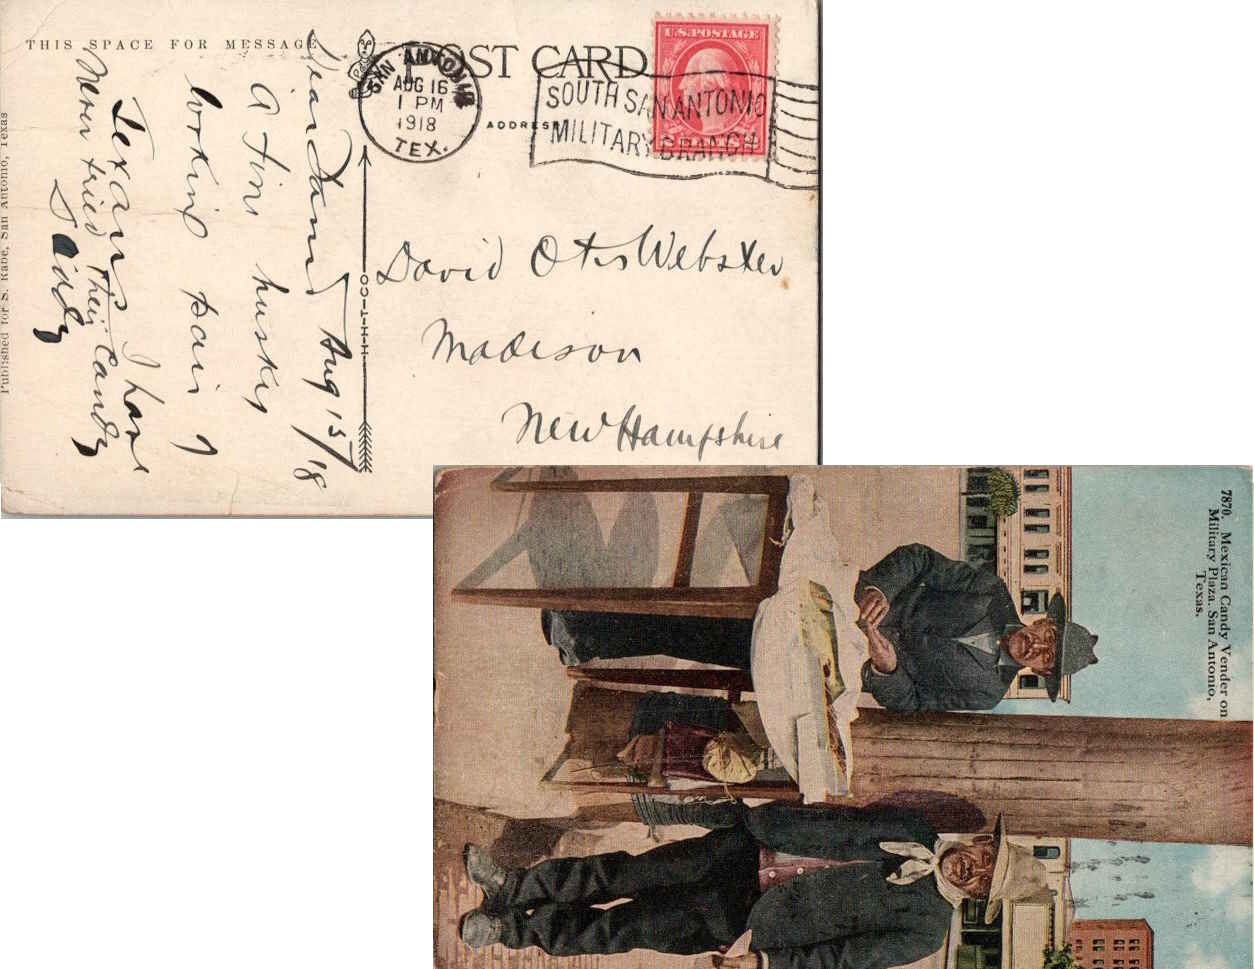 THIS SPACE FOR MESSAGE
POST CARD
ADDRESS
U.S. POSTAGE
SAN ANTONIO
AUG 16
1 PM
1918
TEX.
SOUTH SAN ANTONIO
MILITARY BRANCH
Aug 15/18
a fine husky
looking pair of
Texans I have
never tried their candy
Daddy
David Otis Webster
Madison
New Hampshire
Published for S. Rabe, San Antonio, Texas
C-T-HIT-CO
7870. Mexican Candy Vender on
Military Plaza, San Antonio,
Texas.